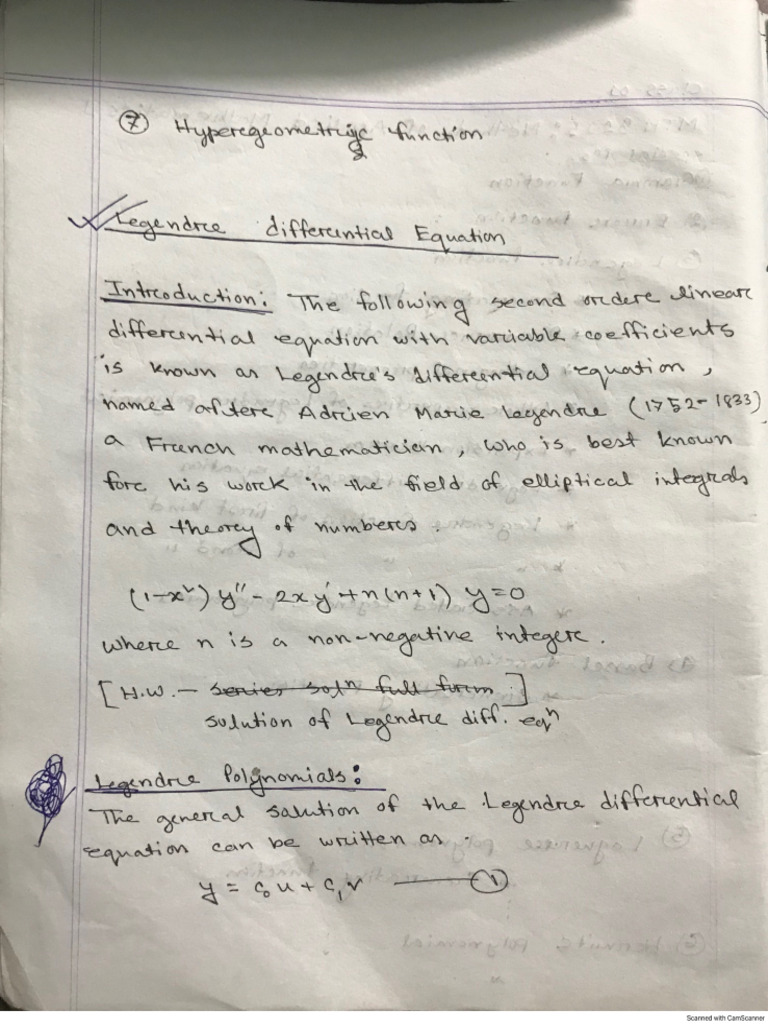 ⑦ Hyperegeometric function
Legendre differential Equation
Introduction: The following second ordere linearc
differential equation with variable coefficients
is known as Legendre's differential equation,
named aftere Adrien Marie Legendre (1752-1833)
a French mathematician, who is best known
forc his work in the field of elliptical integrals
and theorcy of numberes.
(1-x²) y'' - 2xy' + n(n+1) y = 0
where n is a non-negative integerc.
[H.W. - series solⁿ full form]
solution of Legendre diff. eqⁿ
Legendre Polynomials:
The general solution of the Legendre differential
equation can be written as.
y = c₀u + c₁v ——— ①
Scanned with CamScanner